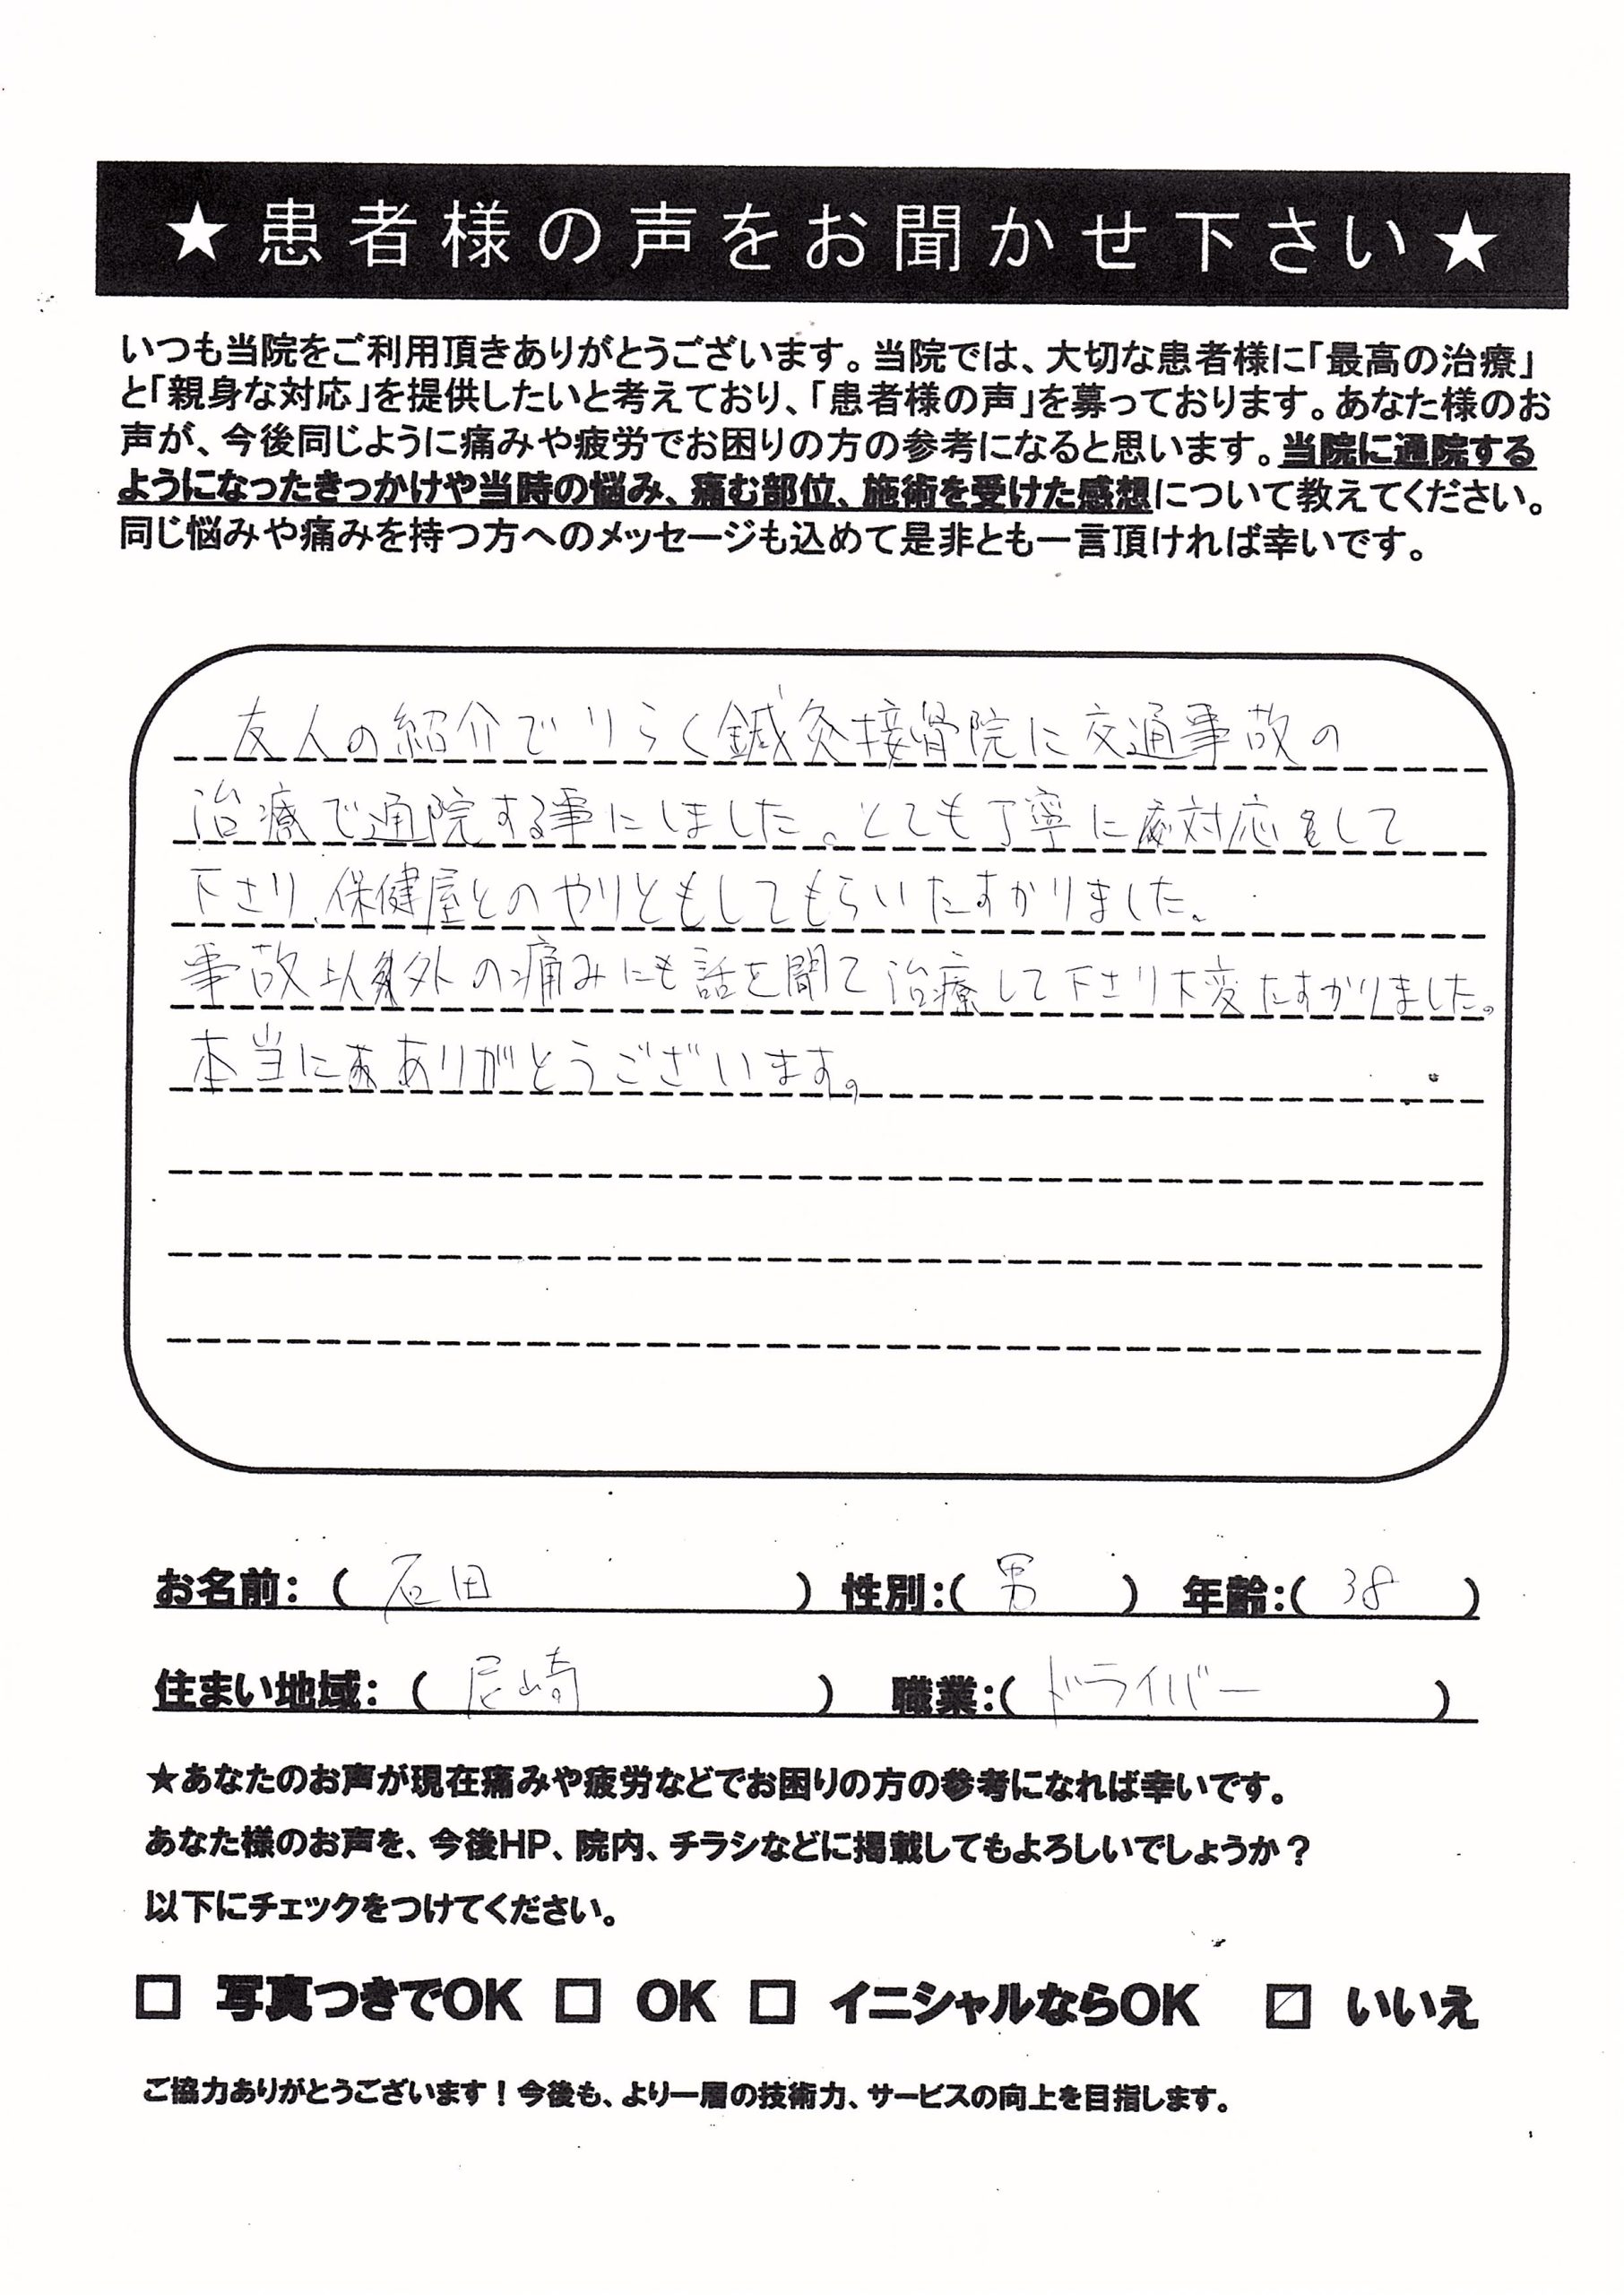 ★患者様の声をお聞かせ下さい★
いつも当院をご利用頂きありがとうございます。当院では、大切な患者様に「最高の治療」
と「親身な対応」を提供したいと考えており、「患者様の声」を募っております。あなた様のお
声が、今後同じように痛みや疲労でお困りの方の参考になると思います。当院に通院する
ようになったきっかけや当時の悩み、痛む部位、施術を受けた感想について教えてください。
同じ悩みや痛みを持つ方へのメッセージも込めて是非とも一言頂ければ幸いです。
友人の紹介でりらく鍼灸接骨院に交通事故の
治療で通院する事にしました。とても丁寧に対応をして
下さり、保健屋とのやりともしてもらいたすかりました。
事故以外の痛みにも話を聞て治療して下さり大変たすかりました。
本当にありがとうございます。
お名前:( 石田 ) 性別:( 男 ) 年齢:( 38 )
住まい地域:( 尼崎 ) 職業:( ドライバー )
★あなたのお声が現在痛みや疲労などでお困りの方の参考になれば幸いです。
あなた様のお声を、今後HP、院内、チラシなどに掲載してもよろしいでしょうか?
以下にチェックをつけてください。
□ 写真つきでOK □ OK □ イニシャルならOK ☑ いいえ
ご協力ありがとうございます!今後も、より一層の技術力、サービスの向上を目指します。